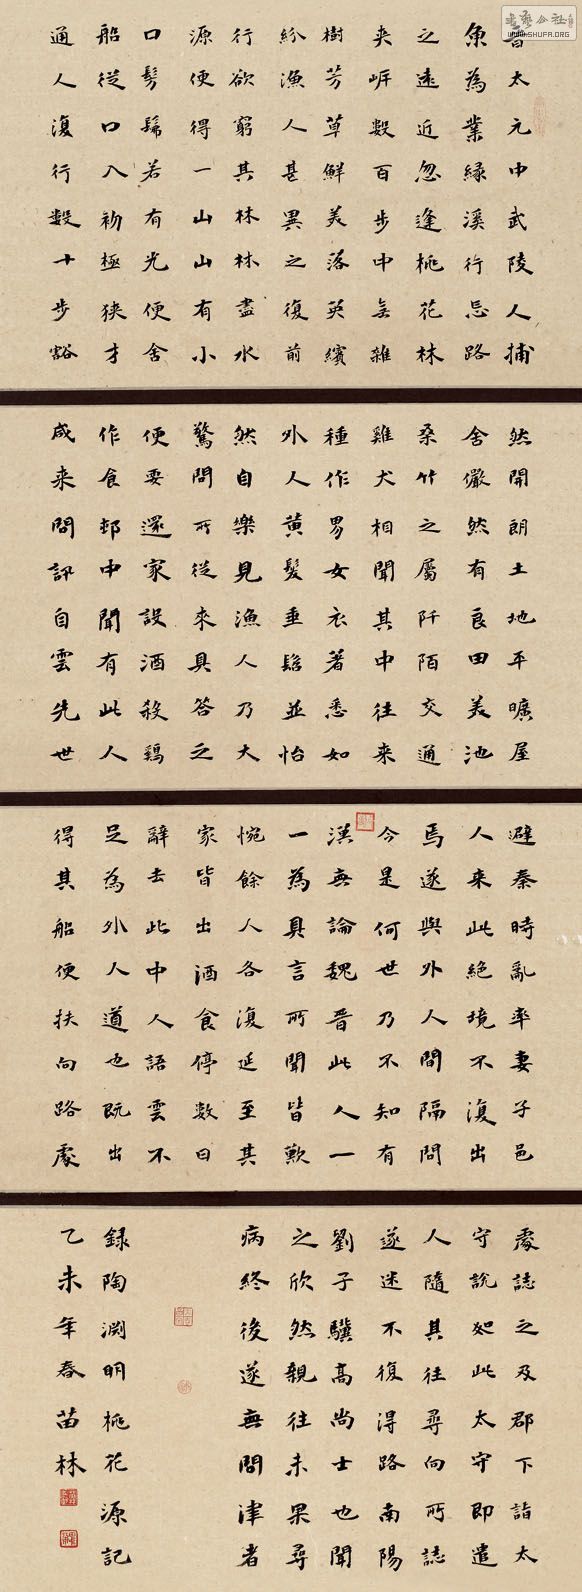 晉太元中武陵人捕
魚為業緣溪行忘路
之遠近忽逢桃花林
夾岸數百步中無雜
樹芳草鮮美落英繽
紛漁人甚異之復前
行欲窮其林林盡水
源便得一山山有小
口髣髴若有光便舍
船從口入初極狹才
通人復行數十步豁
然開朗土地平曠屋
舍儼然有良田美池
桑竹之屬阡陌交通
雞犬相聞其中往來
種作男女衣著悉如
外人黃髮垂髫並怡
然自樂見漁人乃大
驚問所從來具答之
便要還家設酒殺鷄
作食邨中聞有此人
咸来問訊自雲先世
避秦時亂率妻子邑
人来此絕境不復出
焉遂與外人間隔問
今是何世乃不知有
漢無論魏晉此人一
一為具言所聞皆歎
惋餘人各復延至其
家皆出酒食停數日
辭去此中人語雲不
足為外人道也既出
得其船便扶向路處
處誌之及郡下詣太
守說如此太守即遣
人隨其往尋向所誌
遂迷不復得路南陽
劉子驥高尚士也聞
之欣然親往未果尋
病終後遂無問津者
録陶淵明桃花源記
乙未年春苗林
书法公社
WWW.SHUFA.ORG